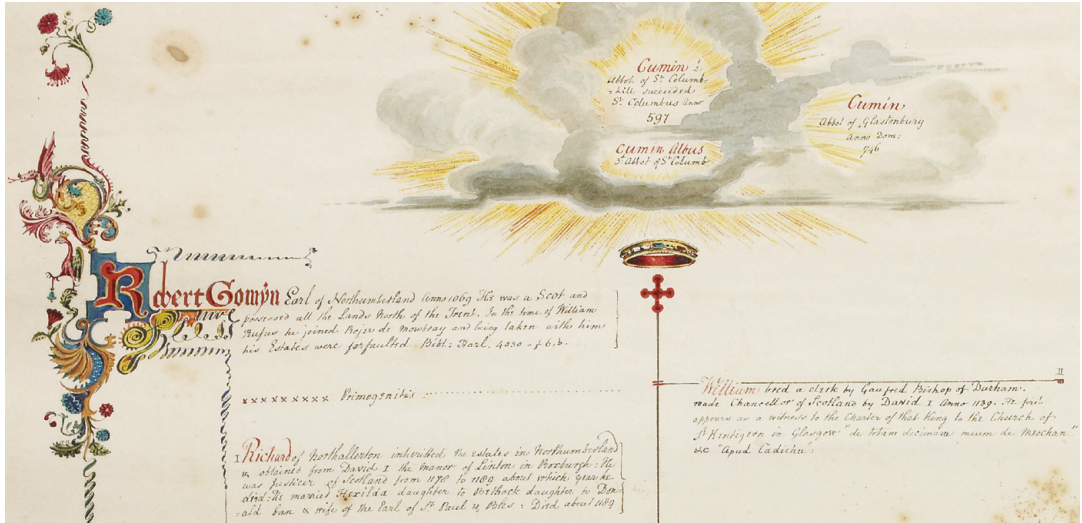 Cumin 2
Abbot of St. Columb-
-kill succeeded
St. Columbus Anno
597
Cumin Albus
5 Abbot of St Columb
Cumin
Abbot of Glastonbury
Anno Dom:
746
Robert Gomyn Earl of Northumberland Anno 1069 He was a Scot and
possessed all the Lands North of the Trent. In the time of William
Rufus he joined Rojer de Mowbray and being taken with him
his Estates were forfaulted. Bibl: Harl. 4030 - f 6. b.
Primogenitis
1 Richard of Northallerton inheribted the Estates in Northumberland
& obtained from David I the Manor of Linton in Roxburgh: He
was Justicer of Scotland from 1178 to 1189 about which year he
died: He married Hexilda daughter to daughter to Don-
-ald ban & wife of the Earl of St Paul & : Died about 1189
II
William bred a clerk by Gaufrid Bishop of Durham.
made Chancellor of Scotland by David I Anno 1139. He first
appears as a witness to the Charter of that King to the Church of
St Kintigern in Glasgow "de totam decimam meum de "
&c "Apud Cadichu: